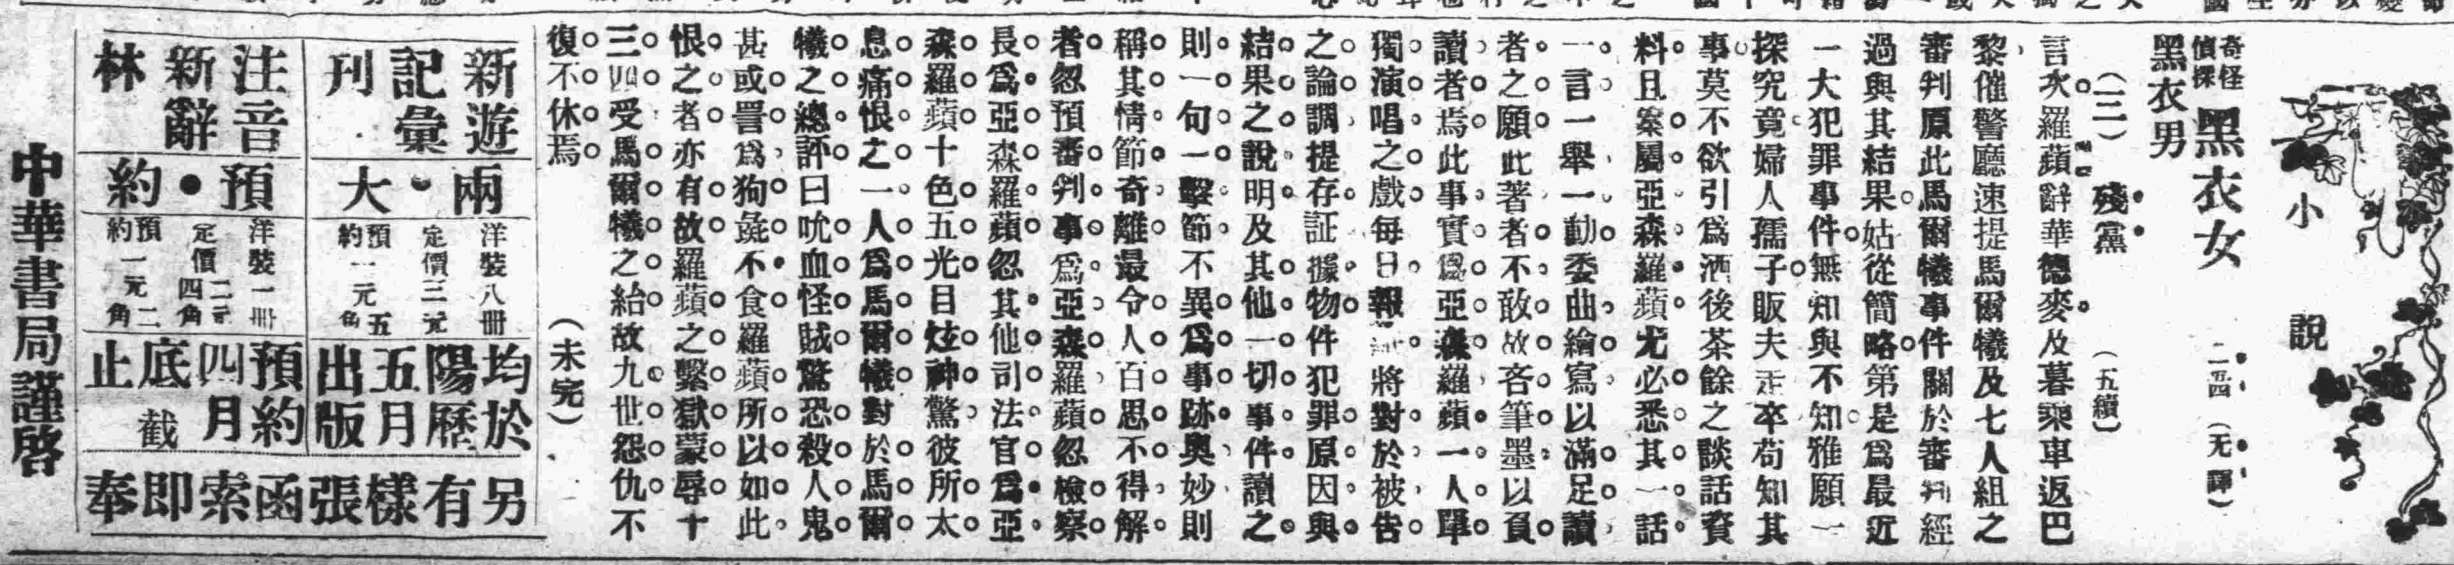 小說
奇怪偵探
黑衣女
黑衣男
(无譯)
(三) 殘黨 (五續)
言次羅蘋辭華德麥及暮乘車返巴
黎催警廳速提馬爾犧及七人組之
審判原此馬爾犧事件關於審判經
過與其結果姑從簡略第是為最近
一大犯罪事件無知與不知雅願一
探究竟婦人孺子販夫走卒苟知其
事莫不欲引為酒後茶餘之談話資
料且案屬亞森羅蘋尤必悉其一話
一言一舉一動委曲繪寫以滿足讀
者之願此著者不敢故吝筆墨以負
讀者焉此事實為亞森羅蘋一人單
獨演唱之戲每日報 將對於被告
之論調提存証據物件犯罪原因與
結果之說明及其他一切事件讀之
則一句一擊節不異為事跡奧妙則
稱其情節奇離最令人百思不得解
者忽預審判事為亞森羅蘋忽檢察
長為亞森羅蘋忽其他司法官為亞
森羅蘋十色五光日炫神驚彼所太
息痛恨之一人為馬爾犧對於馬爾
犧之總評曰吮血怪賊驚恐殺人鬼
甚或詈為狗彘不食羅蘋所以如此
恨之者亦有故羅蘋之繫獄蒙辱十
三四受馬爾犧之紿故九世怨仇不
復不休焉
(未完)
新遊記彙刊
兩大
洋裝八冊
定價三元
預約一元五角
均於陽曆五月出版
注音新辭林
預約
洋裝一冊
定價二元四角
預約一元二角
預約四月底截止
另有樣張函索即奉
中華書局謹啓